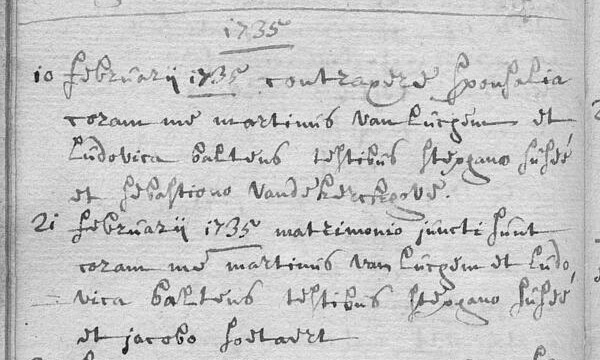 1735
10 februarij 1735 contraxere sponsalia
coram me martinus van Lucxem et
Ludovica baltens testibus stephano suske
et sebastiano vandekerchove.
21 februarij 1735 matrimonio juncti sunt
coram me martinus van Lucxem et Ludo,
vica baltens testibus stephano suske
et jacobo soetaert